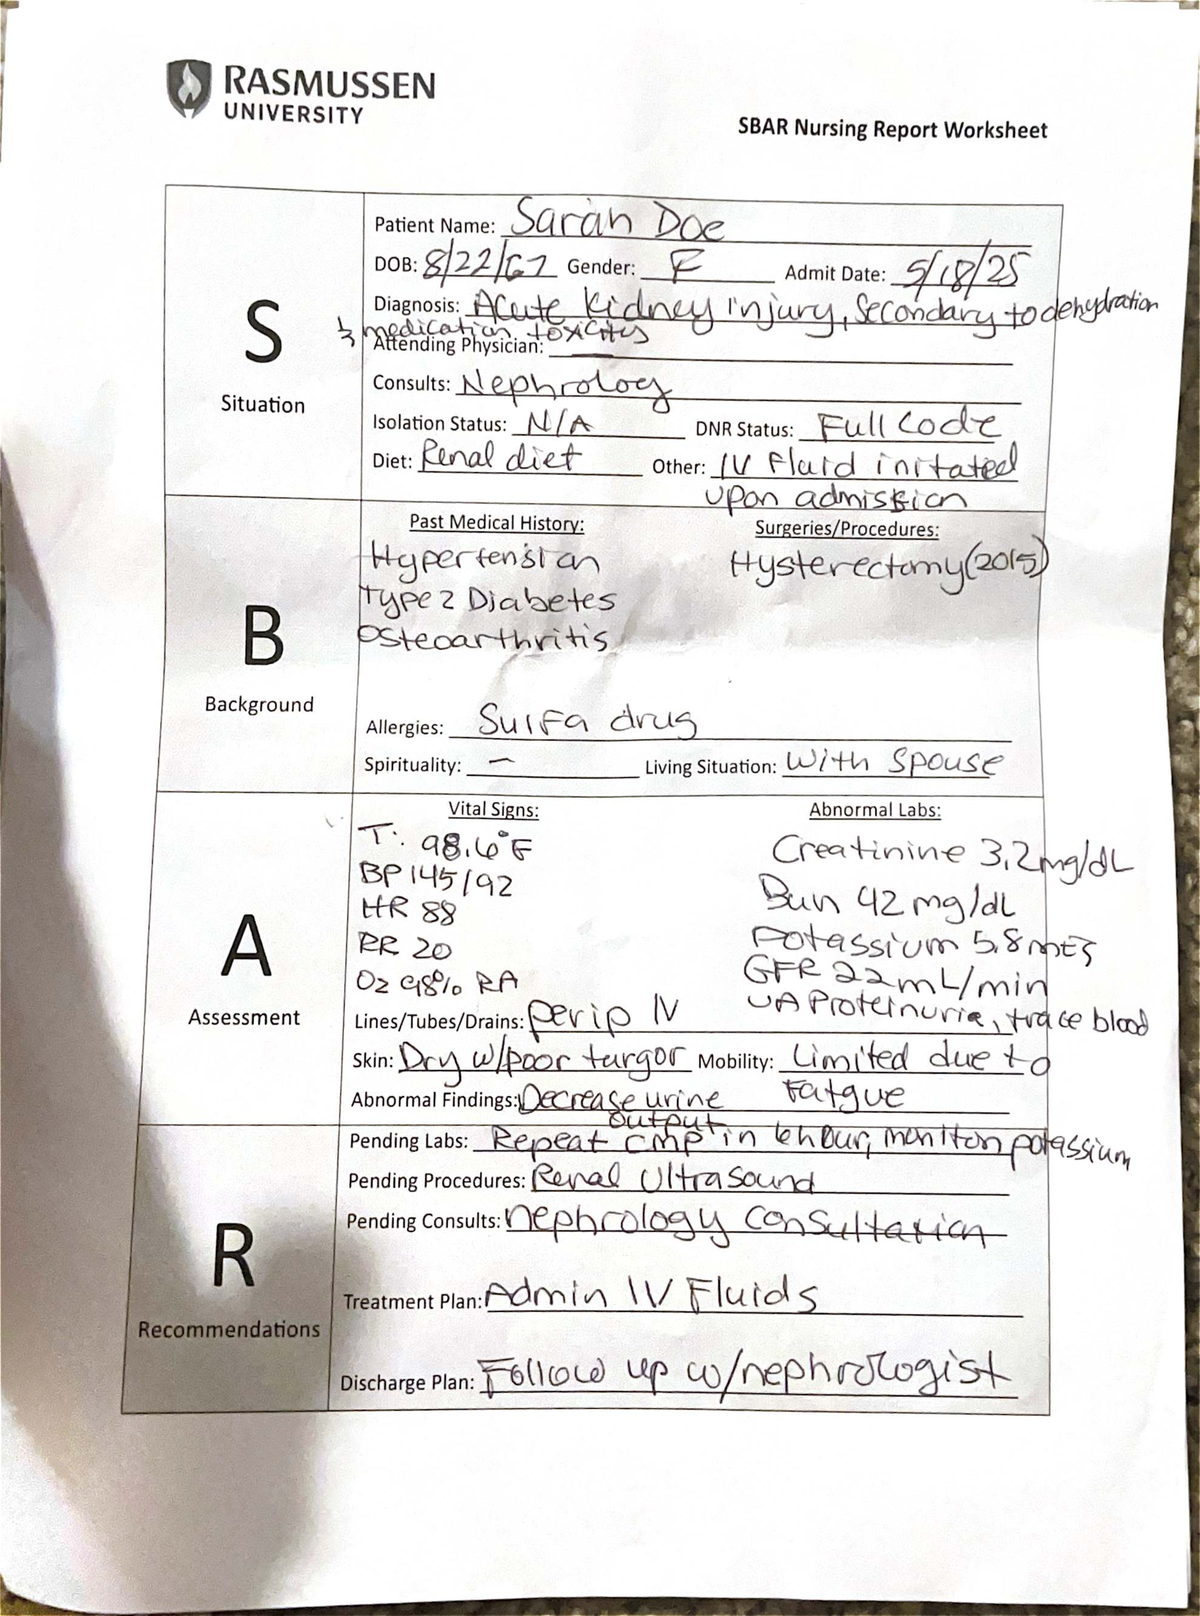 RASMUSSEN
UNIVERSITY
SBAR Nursing Report Worksheet
S
Situation
Patient Name: Sarah Doe
DOB: 8/22/67 Gender: F Admit Date: 5/18/25
Diagnosis: Acute Kidney injury, Secondary to dehydration
& medication toxicity
Attending Physician: —
Consults: Nephrology
Isolation Status: N/A DNR Status: Full Code
Diet: Renal diet Other: IV Fluid initated
upon admission
B
Background
Past Medical History: Surgeries/Procedures:
Hypertension Hysterectomy (2015)
Type 2 Diabetes
Osteoarthritis
Allergies: Sulfa drug
Spirituality: — Living Situation: With Spouse
A
Assessment
Vital Signs: Abnormal Labs:
T: 98.6°F Creatinine 3.2 mg/dL
BP 145/92 Bun 42 mg/dL
HR 88 Potassium 5.8
RR 20 GFR 22 mL/min
O2 98% RA UA Proteinuria, trace blood
Lines/Tubes/Drains: perip IV
Skin: Dry w/poor turgor Mobility: Limited due to
Fatgue
Abnormal Findings: Decrease urine
output
R
Recommendations
Pending Labs: Repeat CMP in 6 hour, moniton potassium
Pending Procedures: Renal Ultrasound
Pending Consults: nephrology consultation
Treatment Plan: Admin IV Fluids
Discharge Plan: Follow up w/nephrologist